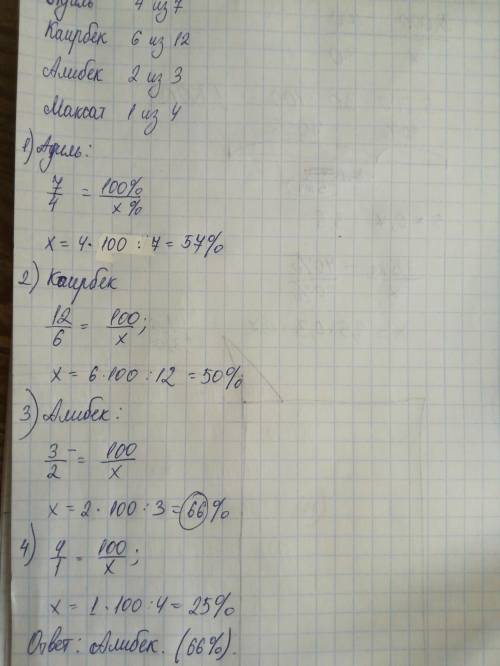 Адиль 4 из 7
Каирбек 6 из 12
Алибек 2 из 3
Максат 1 из 4
1) Адиль:
7/4 = 100%/x%
x = 4 · 100 : 7 = 57%
2) Каирбек
12/6 = 100/x;
x = 6 · 100 : 12 = 50%
3) Алибек:
3/2 = 100/x
x = 2 · 100 : 3 = 66%
4) 4/1 = 100/x;
x = 1 · 100 : 4 = 25%
Ответ: Алибек. (66%).